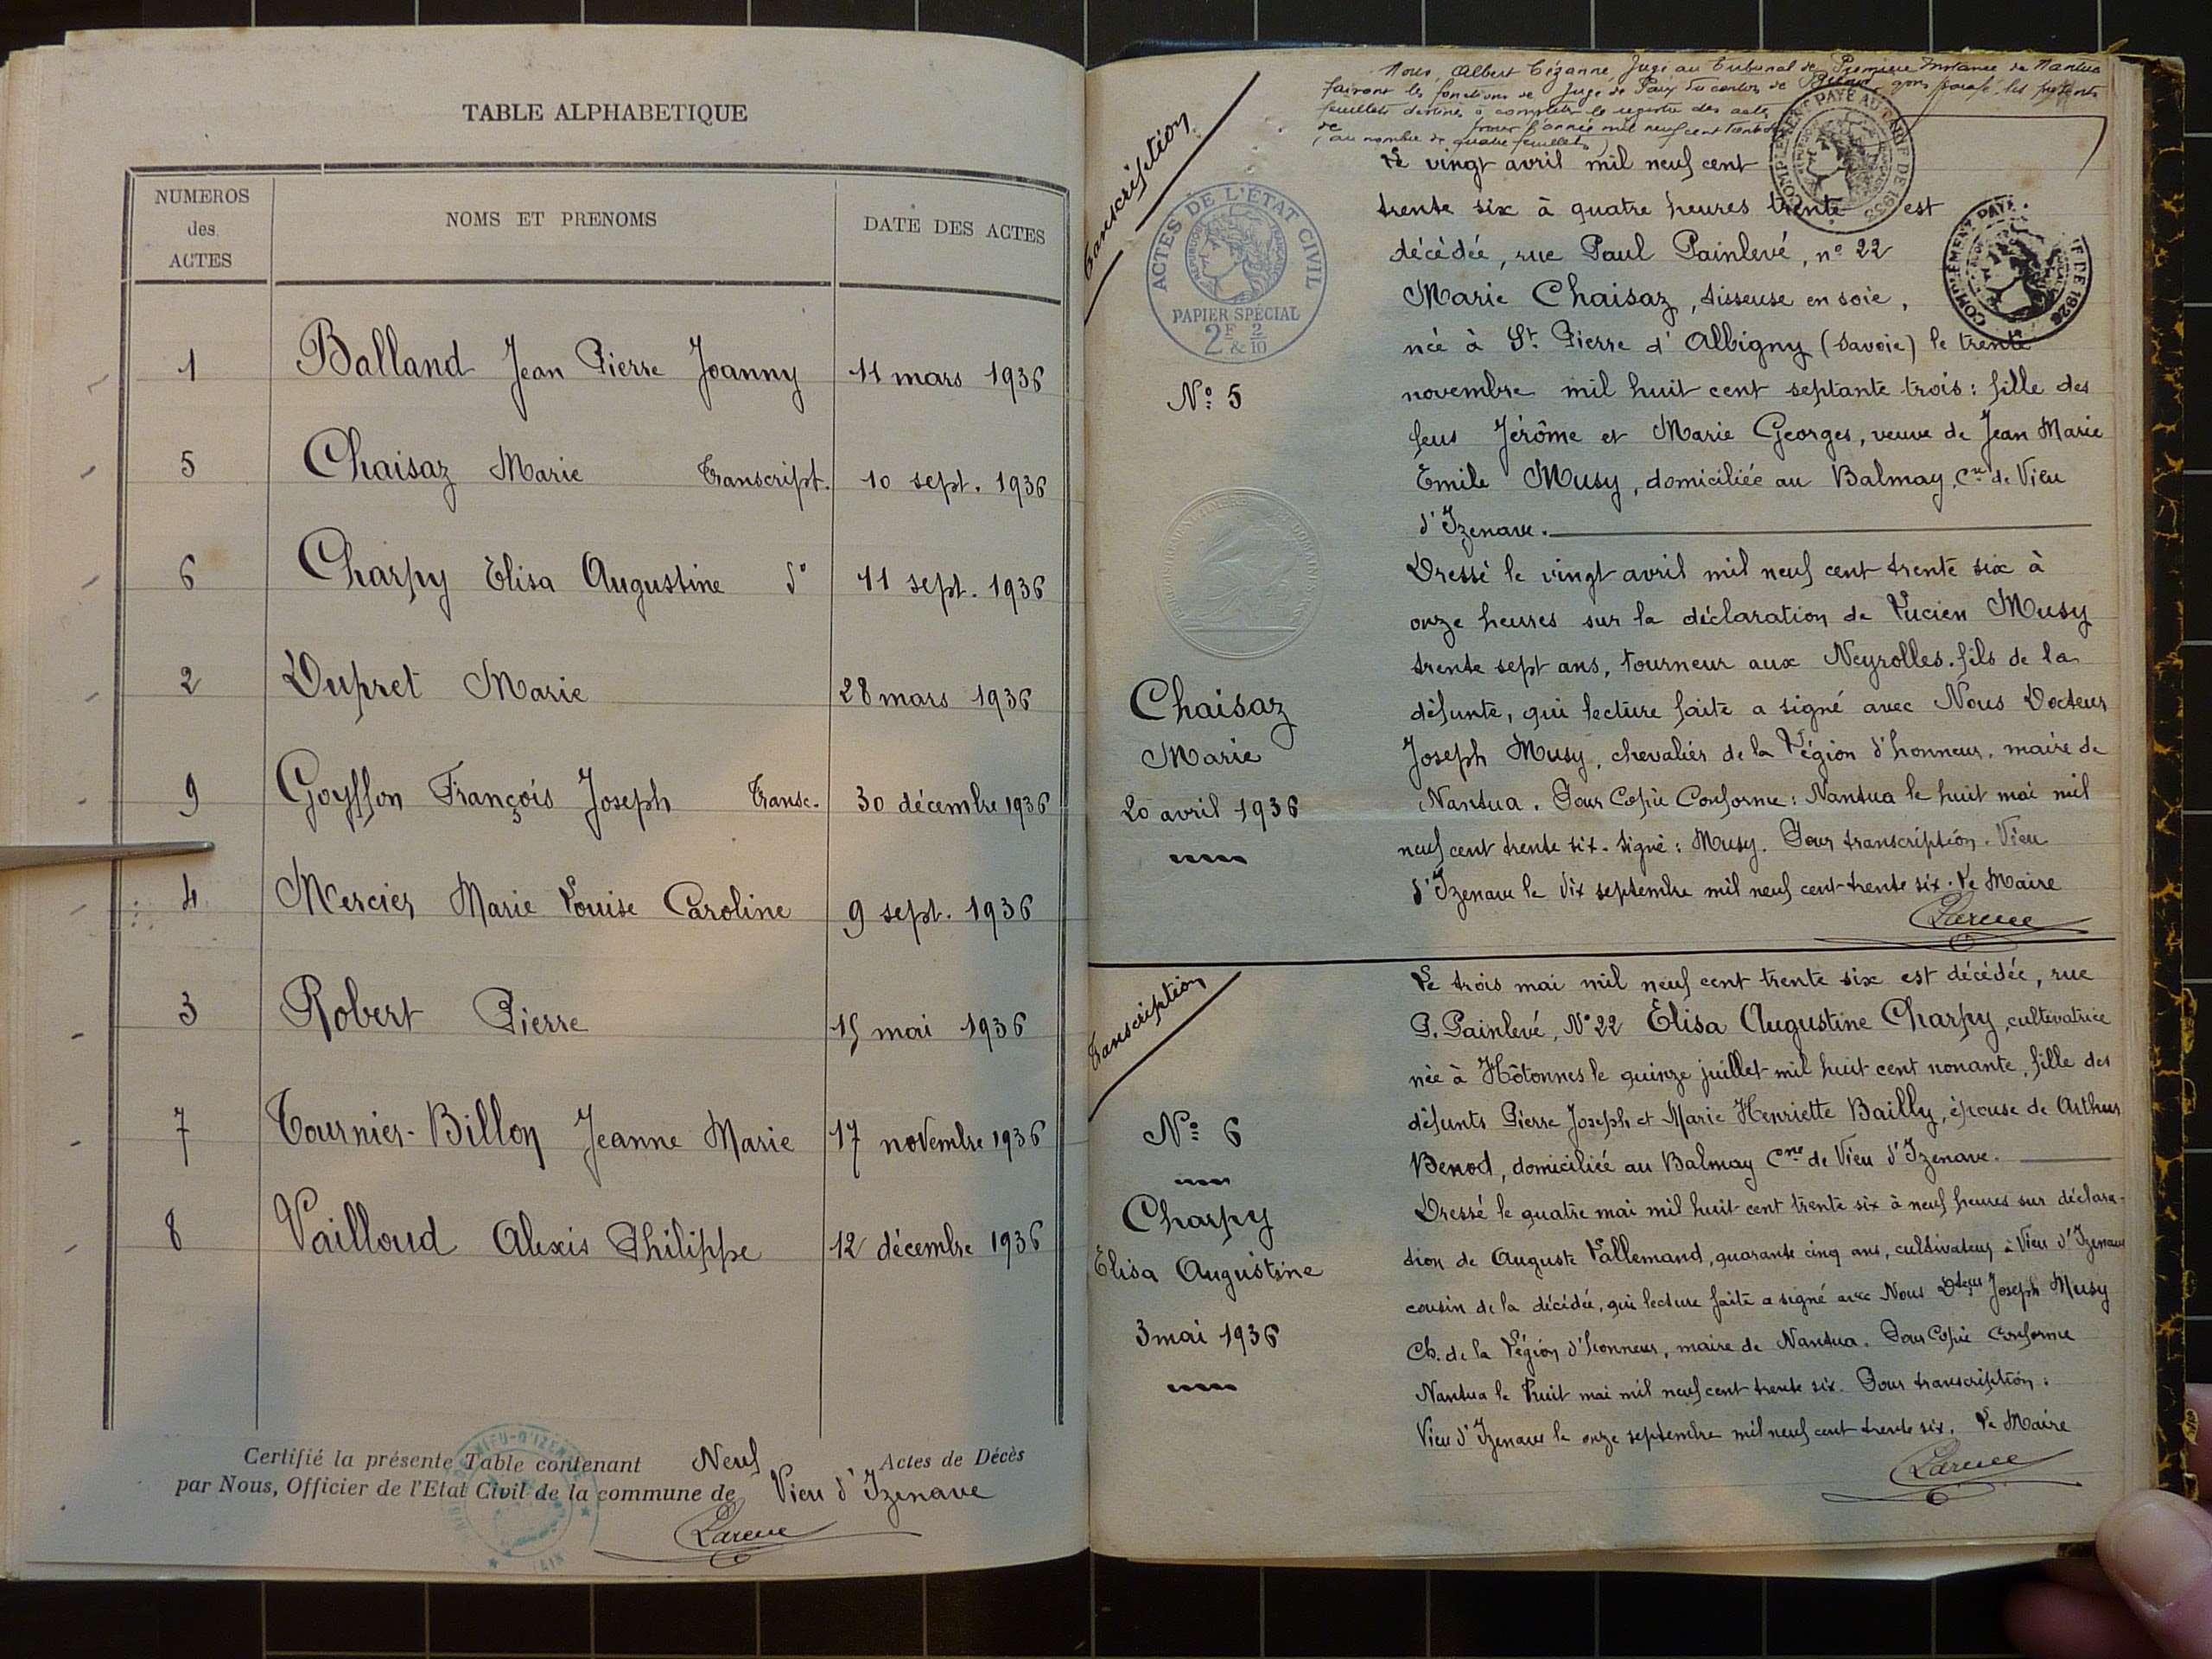 TABLE ALPHABETIQUE
NUMEROS
des
ACTES
NOMS ET PRENOMS
DATE DES ACTES
1 Balland Jean Pierre Joanny 11 mars 1936
5 Chaisaz Marie Transcript. 10 sept. 1936
6 Charpy Elisa Augustine d° 11 sept. 1936
2 Dupret Marie 28 mars 1936
9 Goyffon François Joseph Transc. 30 décembre 1936
4 Mercier Marie Louise Caroline 9 sept. 1936
3 Robert Pierre 15 mai 1936
7 Tournier-Billon Jeanne Marie 17 novembre 1936
8 Vailloud Alexis Philippe 12 décembre 1936
Certifié la présente Table contenant Neuf Actes de Décès
par Nous, Officier de l'Etat Civil de la commune de Vieu d'Izenave
Nous, Albert Cézanne, Juge au Tribunal de Première Instance de Nantua
faisant les fonctions de Juge de Paix du canton de avons parafé les présents
feuillets destinés à compléter le registre des actes
de pour l'année mil neuf cent trente
(au nombre de quatre feuillets)
Transcription
ACTES DE L'ETAT CIVIL
PAPIER SPECIAL
2F & 2/10
COMPLEMENT PAYÉ AU TARIF DE 1935
COMPLEMENT PAYÉ
IF DE 1926
N° 5
Chaisaz
Marie
20 avril 1936
Le vingt avril mil neuf cent
trente six à quatre heures trente est
décédée, rue Paul Painlevé, n° 22
Marie Chaisaz, tisseuse en soie,
née à St. Pierre d'Albigny (Savoie) le trente
novembre mil huit cent septante trois : fille des
feus Jérôme et Marie Georges, veuve de Jean Marie
Emile Musy, domiciliée au Balmay, Cne de Vieu
d'Izenave.
Dressé le vingt avril mil neuf cent trente six à
onze heures sur la déclaration de Lucien Musy
trente sept ans, tourneur aux Neyrolles. fils de la
défunte, qui lecture faite a signé avec Nous Docteur
Joseph Musy, chevalier de la Légion d'honneur, maire de
Nantua. Pour Copie Conforme : Nantua le huit mai mil
neuf cent trente six. Signé : Musy. Pour transcription. Vieu
d'Izenave le dix septembre mil neuf cent trente six. Le Maire
Transcription
N° 6
Charpy
Elisa Augustine
3 mai 1936
Le trois mai mil neuf cent trente six est décédée, rue
P. Painlevé, N° 22 Elisa Augustine Charpy, cultivatrice
née à Hôtonnes le quinze juillet mil huit cent nonante, fille des
défunts Pierre Joseph et Marie Henriette Bailly, épouse de Arthur
Benod, domiciliée au Balmay Cne de Vieu d'Izenave.
Dressé le quatre mai mil huit cent trente six à neuf heures sur déclara-
tion de Auguste Lallemand, quarante cinq ans, cultivateur à Vieu d'Izenave
cousin de la décédée, qui lecture faite a signé avec Nous Dteur Joseph Musy
Ch. de la Légion d'honneur, maire de Nantua. Pour Copie Conforme
Nantua le huit mai mil neuf cent trente six. Pour transcription :
Vieu d'Izenave le onze septembre mil neuf cent trente six. Le Maire